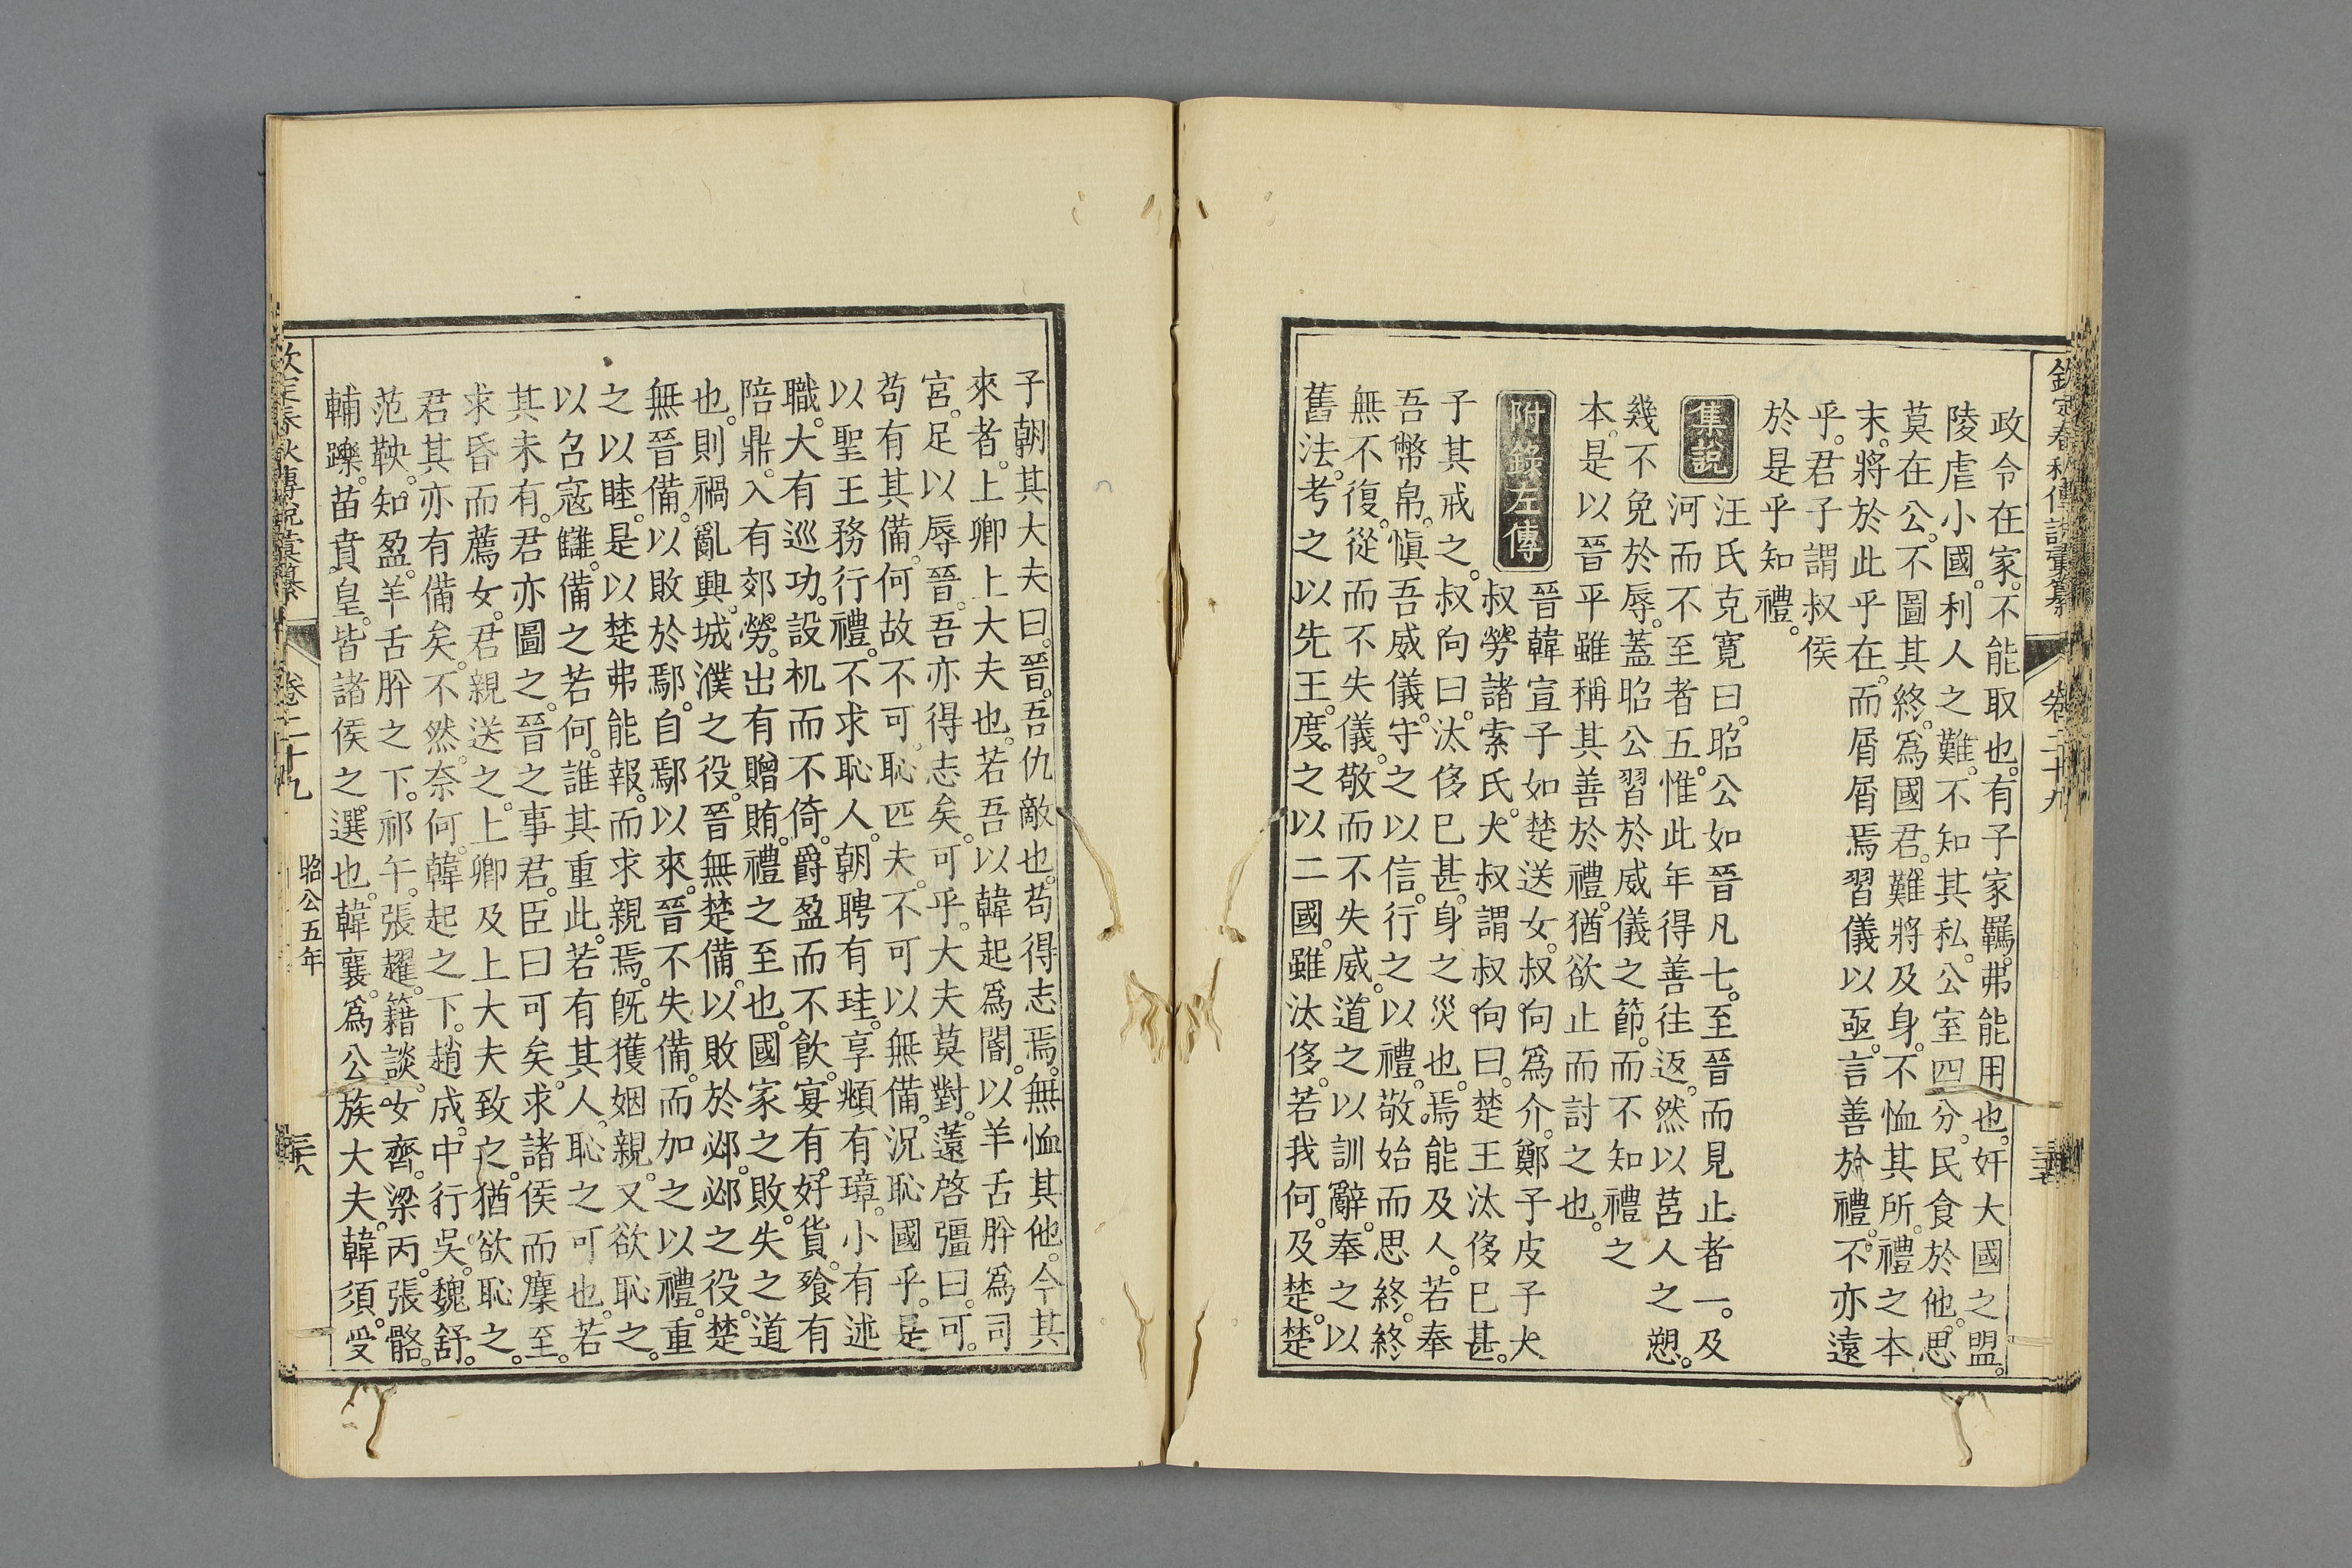 欽定春秋傳說彙纂 卷二十九
政令在家。不能取也。有子家羈。弗能用也。奸大國之盟。
陵虐小國。利人之難。不知其私。公室四分。民食於他。思
莫在公。不圖其終。為國君。難將及身。不恤其所。禮之本
末。將於此乎在。而屑屑焉習儀以亟。言善於禮。不亦遠
乎。君子謂叔侯
於是乎知禮。
集說 汪氏克寬曰。昭公如晉凡七。至晉而見止者一。及
河而不至者五。惟此年得善往返。然以莒人之愬。
幾不免於辱。蓋昭公習於威儀之節。而不知禮之
本。是以晉平雖稱其善於禮。猶欲止而討之也。
附錄左傳 晉韓宣子如楚送女。叔向為介。鄭子皮子大
叔勞諸索氏。大叔謂叔向曰。楚王汰侈已甚。
子其戒之。叔向曰。汰侈已甚。身之災也。焉能及人。若奉
吾幣帛。慎吾威儀。守之以信。行之以禮。敬始而思終。終
無不復。從而不失儀。敬而不失威。道之以訓辭。奉之以
舊法。考之以先王。度之以二國。雖汰侈。若我何。及楚。楚
子朝其大夫曰。晉。吾仇敵也。苟得志焉。無恤其他。今其
來者。上卿上大夫也。若吾以韓起為閽。以羊舌肸為司
宮。足以辱晉。吾亦得志矣。可乎。大夫莫對。薳啓彊曰。可。
苟有其備。何故不可。恥匹夫。不可以無備。況恥國乎。是
以聖王務行禮。不求恥人。朝聘有珪。享頫有璋。小有述
職。大有巡功。設机而不倚。爵盈而不飲。宴有好貨。飱有
陪鼎。入有郊勞。出有贈賄。禮之至也。國家之敗。失之道
也。則禍亂興。城濮之役。晉無楚備。以敗於邲。邲之役。楚
無晉備。以敗於鄢。自鄢以來。晉不失備。而加之以禮。重
之以睦。是以楚弗能報。而求親焉。既獲姻親。又欲恥之。
以召寇讎。備之若何。誰其重此。若有其人。恥之可也。若
其未有。君亦圖之。晉之事君。臣曰可矣。求諸侯而麇至。
求昏而薦女。君親送之。上卿及上大夫致之。猶欲恥之。
君其亦有備矣。不然。奈何。韓起之下。趙成。中行吳。魏舒。
范鞅。知盈。羊舌肸之下。祁午。張趯。籍談。女齊。梁丙。張骼。
輔躒。苗賁皇。皆諸侯之選也。韓襄。為公族大夫。韓須。受
欽定春秋傳說彙纂 卷二十九 昭公五年